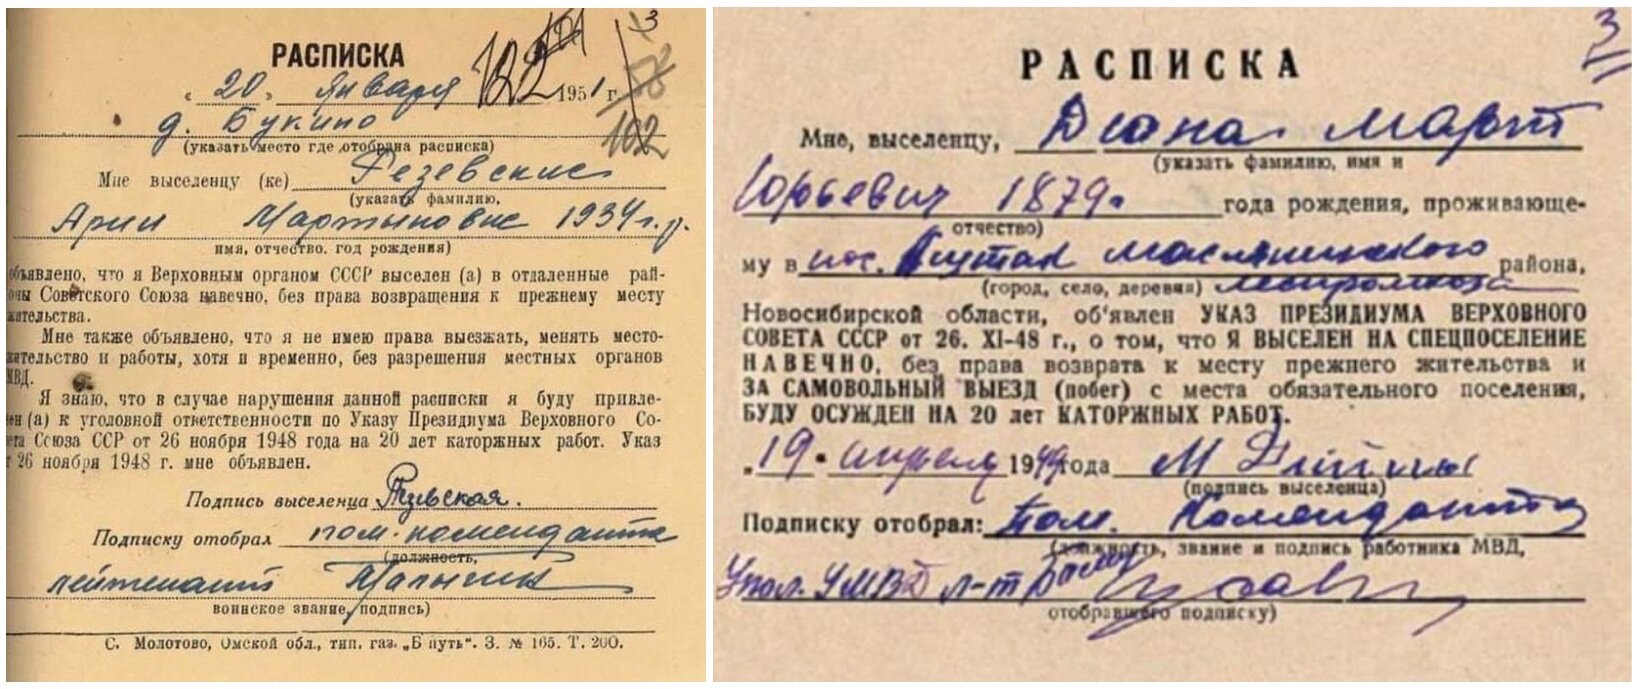 3
РАСПИСКА
122
„20„ января 1951 г.
102
д. Букино
(указать место где отобрана расписка)
Мне выселенцу (ке) Резевские
(указать фамилию,
Арии Мартыновне 1934 г. р.
имя, отчество. год рождения)
объявлено, что я Верховным органом СССР выселен (а) в отдаленные рай-
оны Советского Союза навечно, без права возвращения к прежнему месту
жительства.
Мне также объявлено, что я не имею права выезжать, менять место-
жительство и работы, хотя и временно, без разрешения местных органов
МВД.
Я знаю, что в случае нарушения данной расписки я буду привле-
чен (а) к уголовной ответственности по Указу Президиума Верховного Со-
вета Союза ССР от 26 ноября 1948 года на 20 лет каторжных работ. Указ
от 26 ноября 1948 г. мне объявлен.
Подпись выселенца
Подписку отобрал пом. коменданта
(должность,
лейтенант
воинское звание, подпись)
С. Молотово, Омской обл., тип. газ. „Б путь". З. № 165. Т. 200.
3
РАСПИСКА
Мне, выселенцу, Март
(указать фамилию, имя и
Юрьевич 1879 г. года рождения, проживающе-
отчество)
му в пос. Маслянинского района,
(город, село, деревня) леспромхоза
Новосибирской области, об'явлен УКАЗ ПРЕЗИДИУМА ВЕРХОВНОГО
СОВЕТА СССР от 26. XI-48 г., о том, что Я ВЫСЕЛЕН НА СПЕЦПОСЕЛЕНИЕ
НАВЕЧНО, без права возврата к месту прежнего жительства и
ЗА САМОВОЛЬНЫЙ ВЫЕЗД (побег) с места обязательного поселения,
БУДУ ОСУЖДЕН НА 20 лет КАТОРЖНЫХ РАБОТ.
„19" апреля 1949 года
(подпись выселенца)
Подписку отобрал: Пом. Коменданта
(должность, звание и подпись работника МВД,
Упол. УМВД л-т
отобравшего подписку)